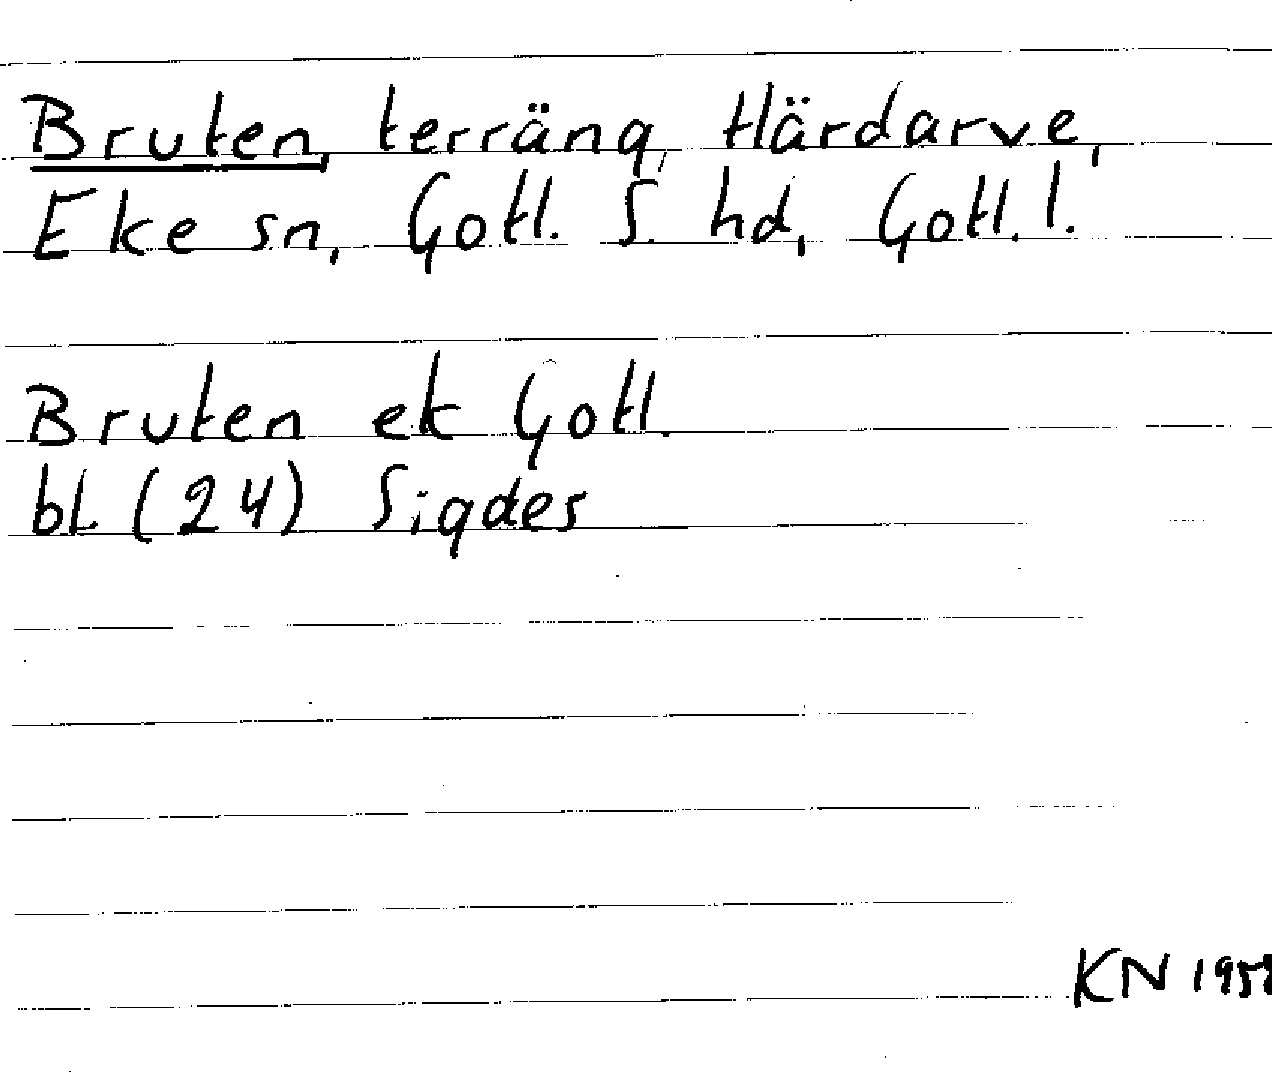 Bruten, terräng, Härdarve,
Eke sn, Gotl. S. hd, Gotl. l.
Bruten ek Gotl.
bl (24) Sigdes
KN